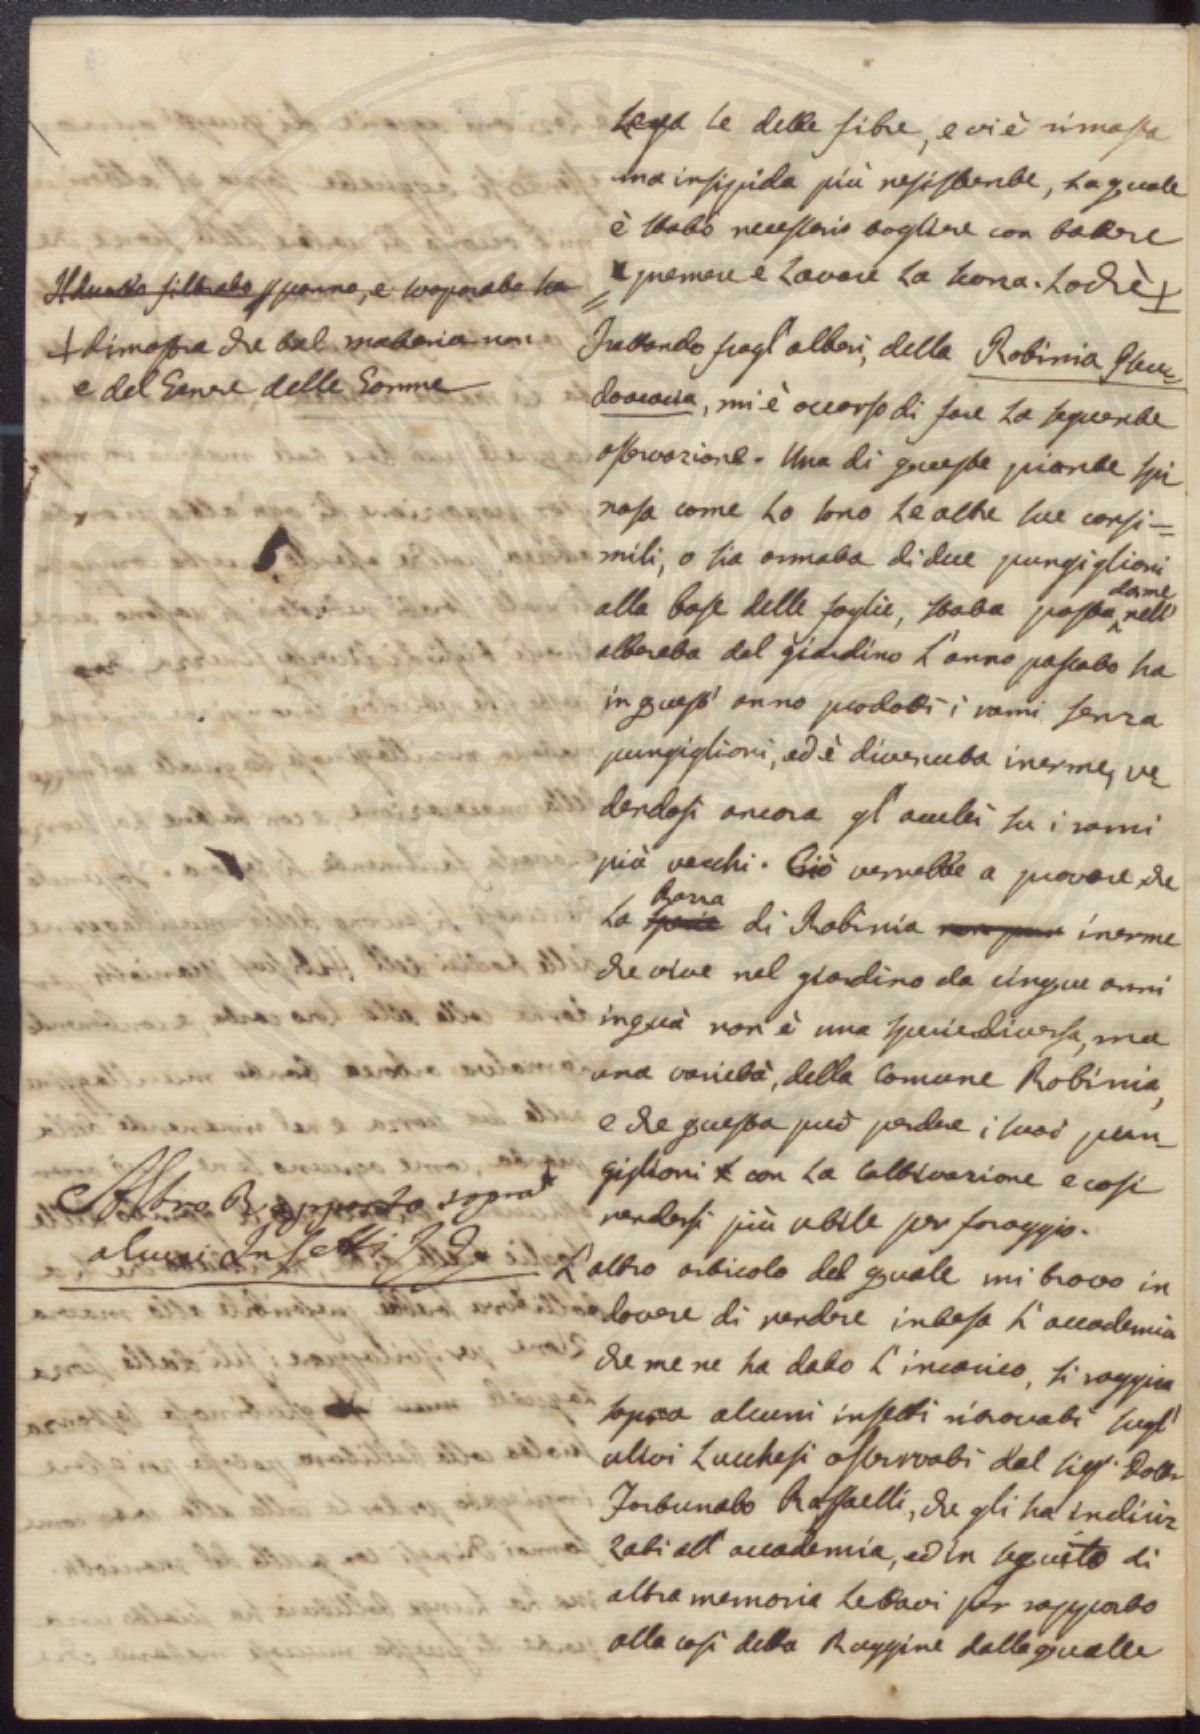 lega le delle fibre, e vi è rimasta
ma insipida più resistente, la quale
è stato necessario togliere con battere
premere e lavare la scorza. Lo chè +
Il ducato filtrato p panno, e svaporato ha
+ dimostra che tal materia non
e del Genere delle Gomme
Trattando fragl'alberi, della Robinia Pseu=
doacacia, mi è occorso di fare la seguente
osservazione. Una di queste piante spi
nosa come lo sono le altre sue consi=
mili, o sia armata di due pungiglioni
alla base delle foglie, stata posta da me nell'
alberata del giardino l'anno passato ha
in quest'anno prodotti i rami senza
pungiglioni, ed è divenuta inerme, ve
dendosi ancora gl'aculei su i rami
più vecchi. Ciò verrebbe a provare che
la specie Razza di Robinia inerme
che vive nel giardino da cinque anni
in quà non è una specie diversa, ma
una varietà, della comune Robinia,
e che questa può perdere i suoi pun-
giglioni con la coltivazione e così
rendersi più utile per foraggio.
Altro Rapporto sopra
alcuni Insetti
L'altro articolo del quale mi trovo in
dovere di rendere intesa l'accademia
che me ne ha dato l'incarico, si raggira
sopra alcuni insetti ritrovati sugl'
ulivi Lucchesi osservati dal Sigr. Dottr
Fortunato Raffaelli, che gli ha indiriz
zati all'accademia, ed in seguito di
altra memoria letta vi per rapporto
alla così detta Ruggine dalla qualle